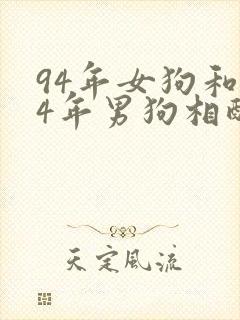 94年女狗和
4年男狗相
天定风流